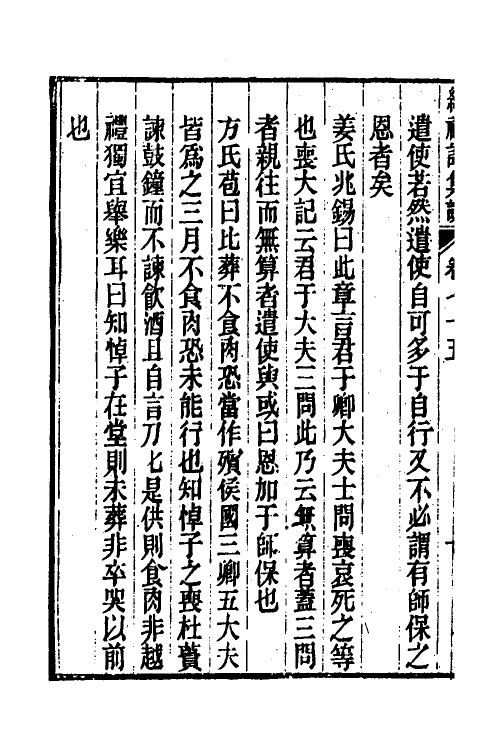 遣使若然遣使自可多于自行又不必謂有師保之
恩者矣
姜氏兆錫曰此章言君于卿大夫士問喪哀死之等
也喪大記云君于大夫三問此乃云無算者蓋三問
者親往而無算者遣使與或曰恩加于師保也
方氏苞曰比葬不食肉恐當作殯侯國三卿五大夫
皆爲之三月不食肉恐未能行也知悼子之喪杜蕢
諫鼓鐘而不諫飲酒且自言刀匕是供則食肉非越
禮獨宜舉樂耳曰知悼子在堂則未葬非卒哭以前
也